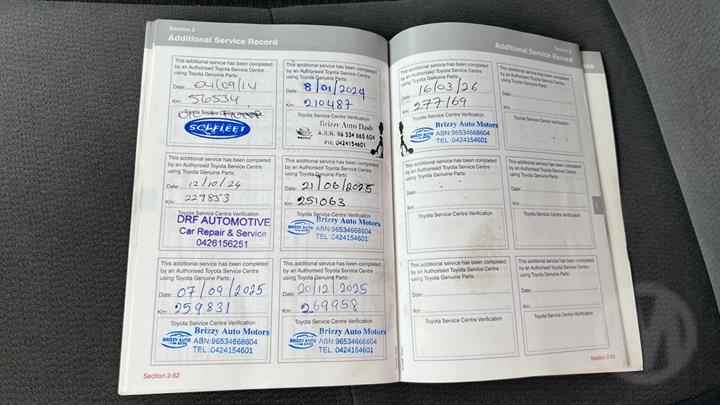 Section 2
Additional Service Record
This additional service has been completed
by an Authorised Toyota Service Centre
using Toyota Genuine Parts:
Date: 04/09/14
Km: 56534
Toyota Service
SCI-FLEET
This additional service has been completed
by an Authorised Toyota Service Centre
using Toyota Genuine Parts:
Date: 8/01/2024
Km: 210487
Toyota Service Centre Verification
Brizzy Auto Dash
A.B.N. 96 534 668 604
PH: 0424154601
This additional service has been completed
by an Authorised Toyota Service Centre
using Toyota Genuine Parts:
Date: 12/10/24
Km: 229853
Toyota Service Centre Verification
DRF AUTOMOTIVE
Car Repair & Service
0426156251
This additional service has been completed
by an Authorised Toyota Service Centre
using Toyota Genuine Parts:
Date: 21/06/2025
Km: 251063
Toyota Service Centre Verification
Brizzy Auto Motors
BRIZZY AUTO
ABN:96534668604
TEL :0424154601
This additional service has been completed
by an Authorised Toyota Service Centre
using Toyota Genuine Parts:
Date: 07/09/2025
Km: 259831
Toyota Service Centre Verification
Brizzy Auto Motors
BRIZZY AUTO
ABN:96534668604
TEL :0424154601
This additional service has been completed
by an Authorised Toyota Service Centre
using Toyota Genuine Parts:
Date: 20/12/2025
Km: 269958
Toyota Service Centre Verification
Brizzy Auto Motors
BRIZZY AUTO
ABN:96534668604
TEL :0424154601
Section 2-52
Section 2
Additional Service Record
This additional service has been completed
by an Authorised Toyota Service Centre
using Toyota Genuine Parts:
Date: 16/03/26
Km: 277169
Toyota Service Centre Verification
Brizzy Auto Motors
BRIZZY AUTO
ABN:96534668604
TEL :0424154601
This additional service has been completed
by an Authorised Toyota Service Centre
using Toyota Genuine Parts:
Date:
Km:
Toyota Service Centre Verification
This additional service has been completed
by an Authorised Toyota Service Centre
using Toyota Genuine Parts:
Date:
Km:
Toyota Service Centre Verification
This additional service has been completed
by an Authorised Toyota Service Centre
using Toyota Genuine Parts:
Date:
Km:
Toyota Service Centre Verification
This additional service has been completed
by an Authorised Toyota Service Centre
using Toyota Genuine Parts:
Date:
Km:
Toyota Service Centre Verification
This additional service has been completed
by an Authorised Toyota Service Centre
using Toyota Genuine Parts:
Date:
Km:
Toyota Service Centre Verification
Section 2-53